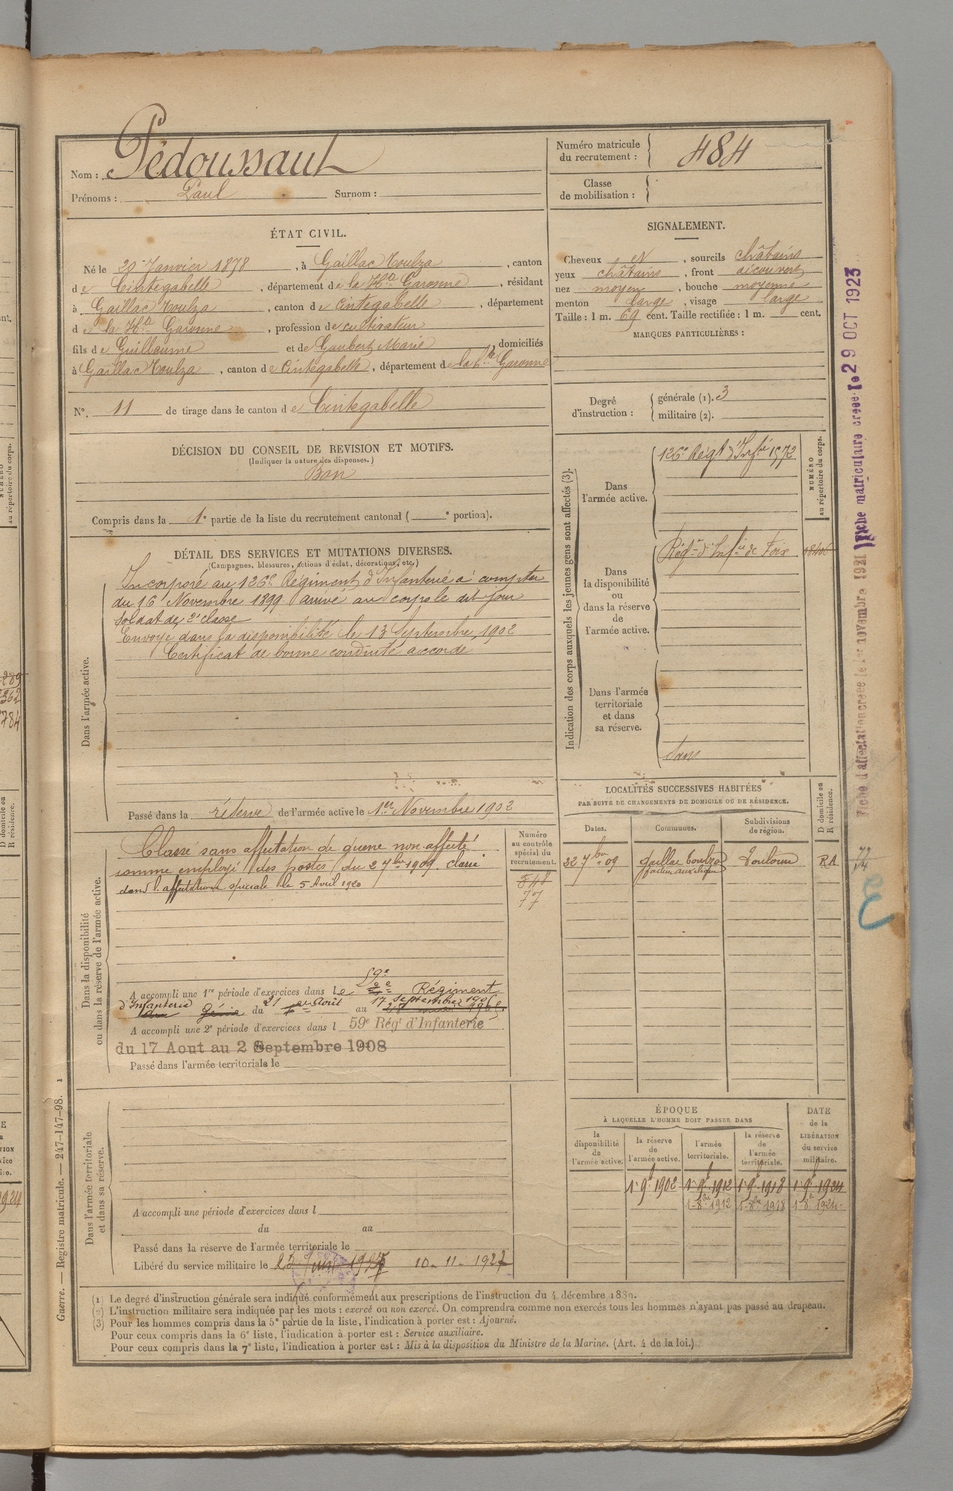 Nom : Pédoussaut
Prénoms : Paul Surnom :
Numéro matricule du recrutement : 484
Classe de mobilisation :
ÉTAT CIVIL.
Né le 20 Janvier 1878, à Gaillac Toulza, canton
de Cintegabelle, département de la Hte Garonne, résidant
à Gaillac Toulza, canton de Cintegabelle, département
de la Hte Garonne, profession de cultivateur
fils de Guillaume et de Gaubert Marie, domiciliés
à Gaillac Toulza, canton de Cintegabelle, département de la Hte Garonne
N°. 11 de tirage dans le canton de Cintegabelle
SIGNALEMENT.
Cheveux et, sourcils châtains
yeux châtains, front découvert
nez moyen, bouche moyenne
menton large, visage large
Taille : 1 m. 69 cent. Taille rectifiée : 1 m. cent.
MARQUES PARTICULIÈRES :
Degré d'instruction : générale (1). 3
militaire (2).
DÉCISION DU CONSEIL DE REVISION ET MOTIFS.
(Indiquer la nature des dispenses.)
Bon
Compris dans la 1e partie de la liste du recrutement cantonal ( e portion).
DÉTAIL DES SERVICES ET MUTATIONS DIVERSES.
(Campagnes, blessures, actions d'éclat, décorations, etc.)
Dans l'armée active.
Incorporé au 126e Régiment d'Infanterie à compter
du 16 Novembre 1899 arrivé au corps le dit jour
soldat de 2e classe
Envoyé dans la disponibilité le 13 Septembre 1902
Certificat de bonne conduite accordé
Passé dans la réserve de l'armée active le 1er Novembre 1902
Indication des corps auxquels les jeunes gens sont affectés (3).
NUMÉRO au répertoire du corps.
Dans l'armée active.
126e Régt d'Infie 1572
Dans la disponibilité ou dans la réserve de l'armée active.
Régt d'Infie de Foix
Dans l'armée territoriale et dans sa réserve.
LOCALITÉS SUCCESSIVES HABITÉES
PAR SUITE DE CHANGEMENTS DE DOMICILE OU DE RÉSIDENCE.
Dates. Communes. Subdivisions de région. D domicile ou R résidence.
22 7bre 09 Gaillac Toulza Toulouse RA
facteur auxiliaire
Dans la disponibilité ou dans la réserve de l'armée active.
Numéro au contrôle spécial du recrutement.
77
Classé sans affectation de guerre non affecté
comme employé des postes du 27 1909. classé
dans l'affectation spéciale le 5 Avril 1920
A accompli une 1re période d'exercices dans le 59e Régiment
d'Infanterie du 21 Août au 17 Septembre 1905
A accompli une 2e période d'exercices dans l 59e Régt d'Infanterie
du 17 Aout au 2 Septembre 1908
Passé dans l'armée territoriale le
Dans l'armée territoriale et dans sa réserve.
A accompli une période d'exercices dans l
du au
Passé dans la réserve de l'armée territoriale le
Libéré du service militaire le 10-11-1927
ÉPOQUE
À LAQUELLE L'HOMME DOIT PASSER DANS
DATE de la LIBÉRATION du service militaire.
la disponibilité de l'armée active.
la réserve de l'armée active.
l'armée territoriale.
la réserve de l'armée territoriale.
1 9bre 1902 1 9bre 1912 1 9bre 1918 1 9bre 1924
1-8-1912 1-8-1918 1-8-1924
(1) Le degré d'instruction générale sera indiqué conformément aux prescriptions de l'instruction du 4 décembre 1889.
(2) L'instruction militaire sera indiquée par les mots : exercé ou non exercé. On comprendra comme non exercés tous les hommes n'ayant pas passé au drapeau.
(3) Pour les hommes compris dans la 5e partie de la liste, l'indication à porter est : Ajourné.
Pour ceux compris dans la 6e liste, l'indication à porter est : Service auxiliaire.
Pour ceux compris dans la 7e liste, l'indication à porter est : Mis à la disposition du Ministre de la Marine. (Art. 4 de la loi.)
Guerre. — Registre matricule. — 247-147-98. 1
Fiche d'affectation créée le 1er novembre 1921
Fiche matriculaire créée le 29 OCT 1923